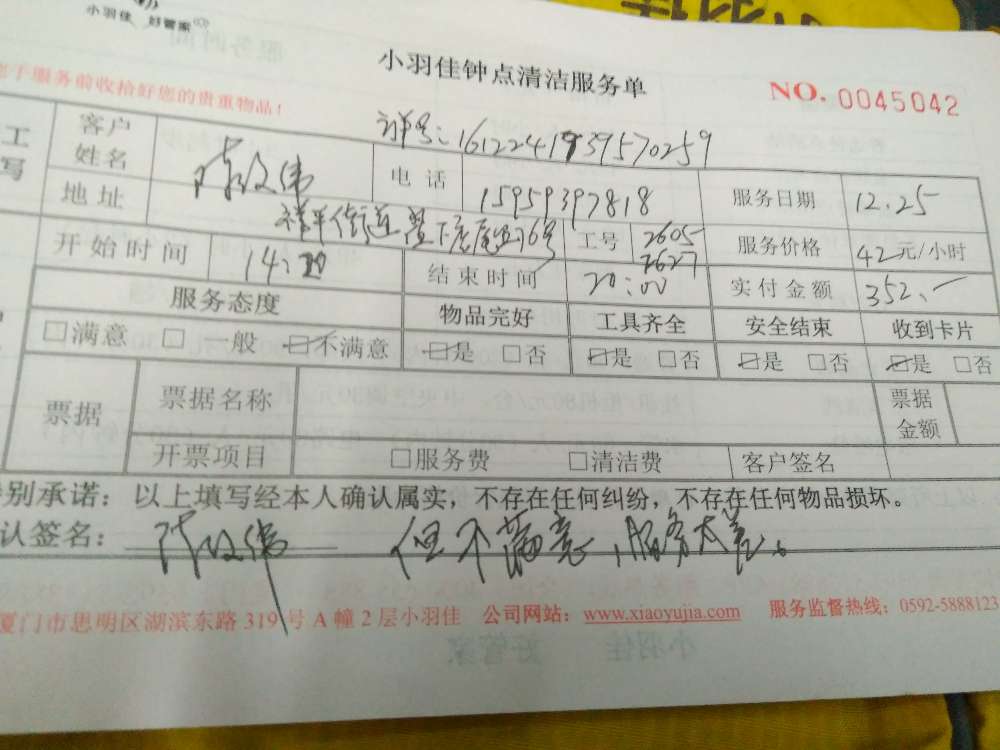 小羽佳 好管家
小羽佳钟点清洁服务单
NO. 0045042
于服务前收拾好您的贵重物品!
工
写
客户姓名
单号:
电话 15959397818
服务日期 12.25
地址 祥平街道
工号 2605 2627
服务价格 42元/小时
开始时间 14:
结束时间 20:00
实付金额 352.-
服务态度 物品完好 工具齐全 安全结束 收到卡片
□满意 □一般 □不满意 □是 □否 □是 □否 □是 □否 □是 □否
票据 票据名称 票据金额
开票项目 □服务费 □清洁费 客户签名
别承诺:以上填写经本人确认属实,不存在任何纠纷,不存在任何物品损坏。
认签名: 但不满意,服务太差。
厦门市思明区湖滨东路 319 号 A 幢 2 层小羽佳 公司网站:www.xiaoyujia.com 服务监督热线:0592-5888123